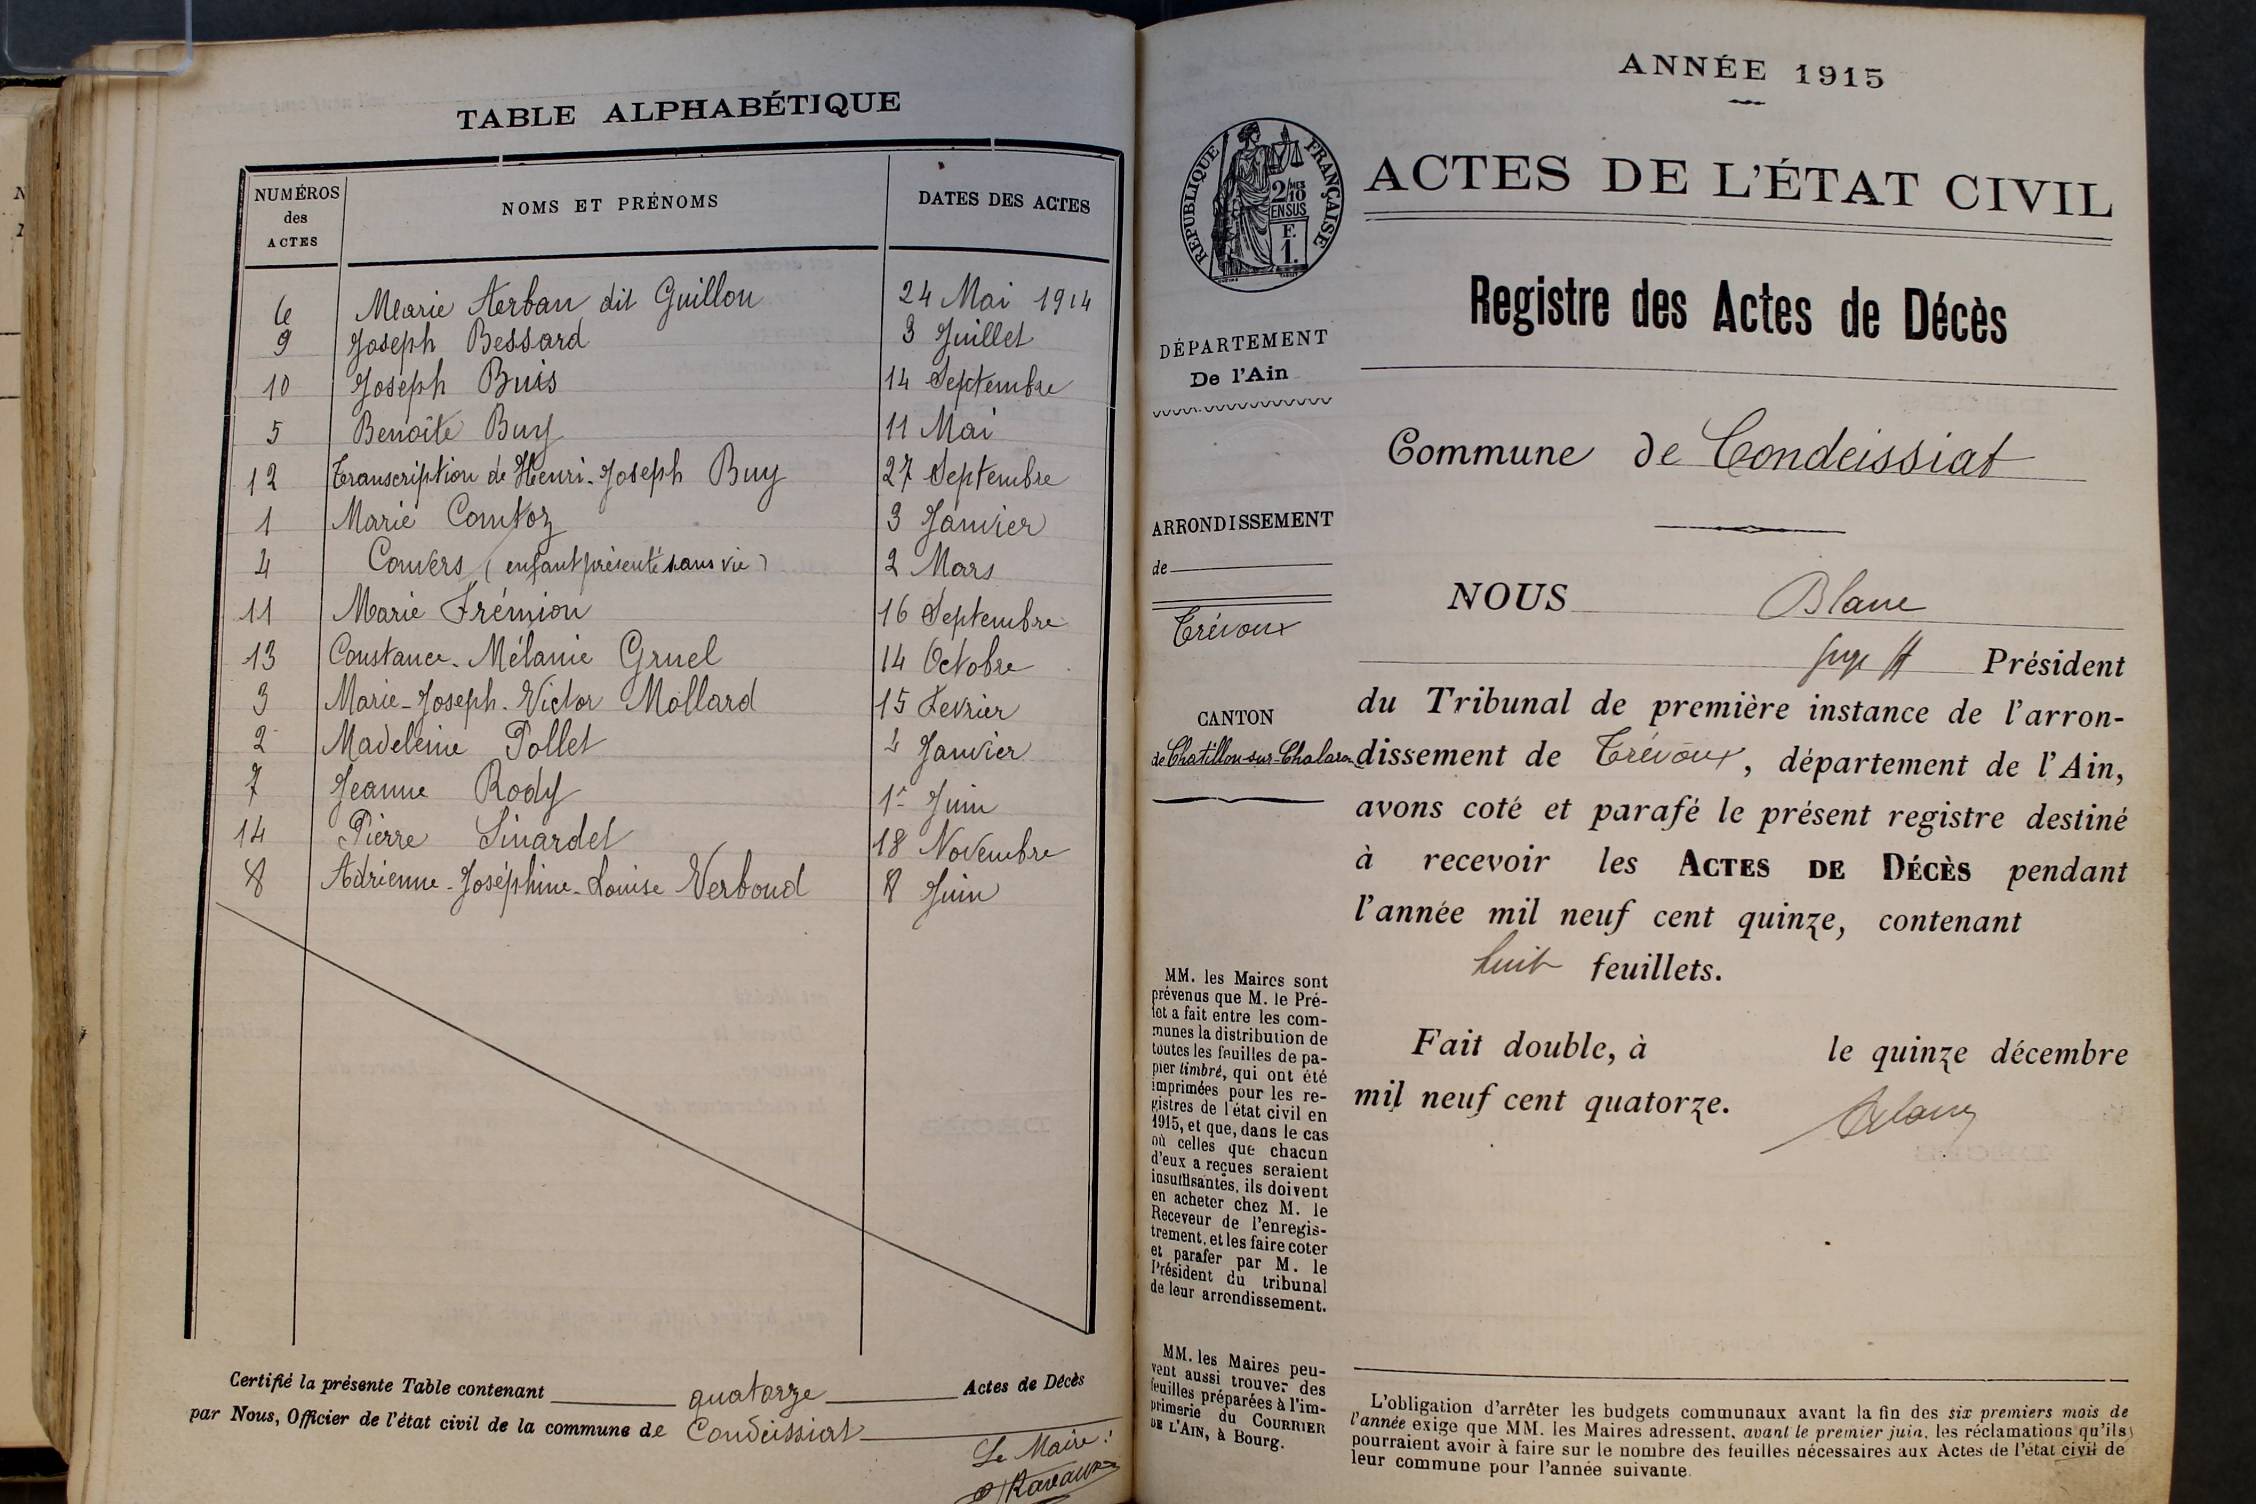 TABLE ALPHABÉTIQUE
NUMÉROS des ACTES NOMS ET PRÉNOMS DATES DES ACTES
6 Marie Aerban dit Guillon 24 Mai 1914
9 Joseph Bessard 3 Juillet
10 Joseph Buis 14 Septembre
5 Benoîte Buy 11 Mai
12 Transcription de Henri-Joseph Buy 27 Septembre
1 Marie Comtoz 3 Janvier
4 Convers (enfant présenté sans vie) 2 Mars
11 Marie Frémion 16 Septembre
13 Constance-Mélanie Gruel 14 Octobre
3 Marie-Joseph-Victor Mollard 15 Fevrier
2 Madeleine Pollet Janvier
7 Jeanne Rody 1er Juin
14 Pierre Sinardet 18 Novembre
8 Adrienne-Joséphine-Louise Verboud 8 Juin
Certifié la présente Table contenant quatorze Actes de Décès
par Nous, Officier de l'état civil de la commune de Condeissiat
Le Maire :
Ravaux
ANNÉE 1915
RÉPUBLIQUE FRANÇAISE
2/10 MES
EN SUS
F.
1.
ACTES DE L'ÉTAT CIVIL
Registre des Actes de Décès
DÉPARTEMENT
De l'Ain
Commune de Condeissiat
ARRONDISSEMENT
de
Trévoux
CANTON
de Chatillon-sur-Chalaronne
MM. les Maires sont
prévenus que M. le Pré-
fet a fait entre les com-
munes la distribution de
toutes les feuilles de pa-
pier timbré, qui ont été
imprimées pour les re-
gistres de l'état civil en
1915, et que, dans le cas
où celles que chacun
d'eux a reçues seraient
insuffisantes, ils doivent
en acheter chez M. le
Receveur de l'enregis-
trement, et les faire coter
et parafer par M. le
Président du tribunal
de leur arrondissement.
MM. les Maires peu-
vent aussi trouver des
feuilles préparées à l'im-
primerie du COURRIER
DE L'AIN, à Bourg.
NOUS Blanc
Juge ff Président
du Tribunal de première instance de l'arron-
dissement de Trévoux, département de l'Ain,
avons coté et parafé le présent registre destiné
à recevoir les ACTES DE DÉCÈS pendant
l'année mil neuf cent quinze, contenant
huit feuillets.
Fait double, à le quinze décembre
mil neuf cent quatorze.
Blanc
L'obligation d'arrêter les budgets communaux avant la fin des six premiers mois de
l'année exige que MM. les Maires adressent, avant le premier juin, les réclamations qu'ils
pourraient avoir à faire sur le nombre des feuilles nécessaires aux Actes de l'état civil de
leur commune pour l'année suivante.